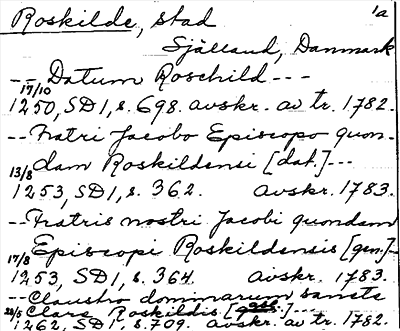 Roskilde, stad 1a
Själland, Danmark
-- Datum Roschild ---
17/10
1250, SD1, s. 698. avskr. av tr. 1782.
-- Fratri Jacobo Episcopo quon-
dam Roskildensi [dat.] ---
13/8
1253, SD1, s. 362. Avskr. 1783.
-- Fratris nostri Jacobi quondam
Episcopi Roskildensis [gen.] -
17/8
1253, SD1, s. 364. Avskr. 1783.
-- Claustro dominarum sancte
Clare Roskildis ----
1262, SD1, s. 709. avskr. av tr. 1782.